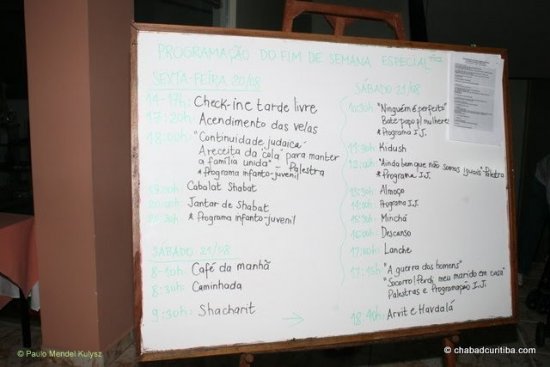 PROGRAMAÇÃO DO FIM DE SEMANA ESPECIAL
SEXTA-FEIRA 20/08
14-17h Check-in e tarde livre
17:20h Acendimento das velas
18:00h "Continuidade judaica
A receita da cola" para manter
a família unida" - Palestra
* Programa infanto-juvenil
Cabalat Shabat
Jantar de Shabat
* Programa infanto-juvenil
SÁBADO 21/08
8-10h Café da manhã
8:30h Caminhada
9:30h Shacharit
SÁBADO 21/08
10:30h "Ninguém é perfeito"
Bate papo p/ mulheres
* Programa I.J.
11:30h Kidush
12:00h "Ainda bem que não somos iguais" Palestra
* Programa I.J.
Almoço
Programa I.J.
15:00h Minchá
16:00h Descanso
17:00h Lanche
17:15h "A guerra dos homens"
"Socorro! Perdi meu marido em casa"
Palestras e Programação I.J.
18:40h Arvit e Havdalá
© Paulo Mendel Kulysz
© chabadcuritiba.com